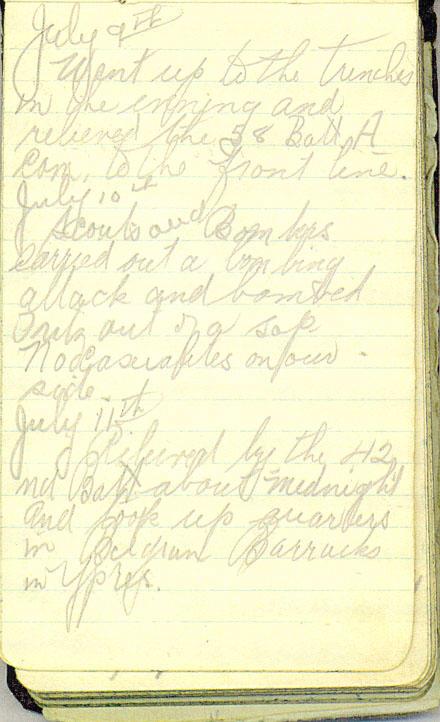 July 9th
Went up to the trenches
in the evning and
relieved the 58 Batt. A
Com. to the front line.
July 10th
Scouts and Bombers
carried out a bombing
attack and bombed
out of a sap.
No casualties on our
side.
July 11th
Relieved by the 42
nd Batt about midnight
and took up quarters
in Barracks
in Ypres.